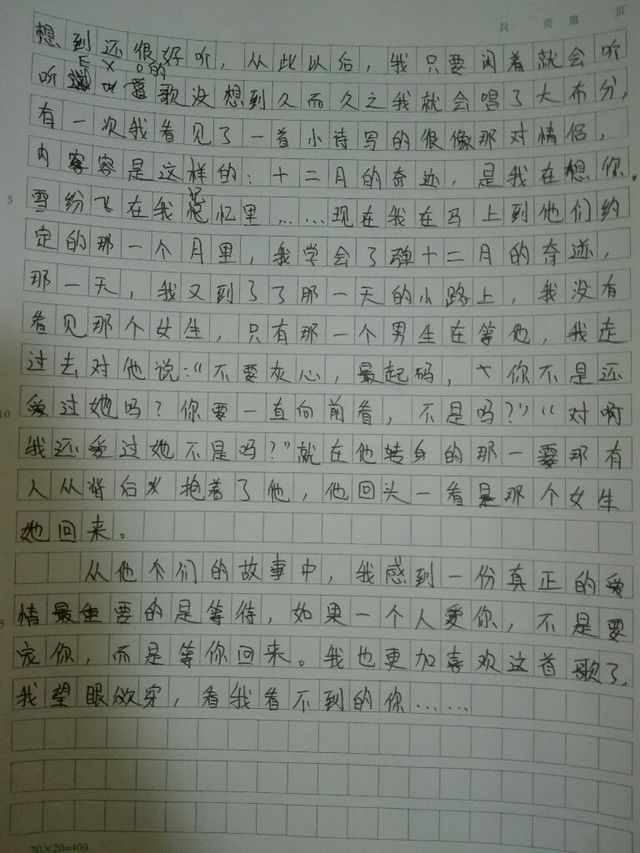 共 页 第 页
想到还很好听，从此以后，我只要闲着就会听
听EXO的歌没想到久而久之我就会唱了大布分，
有一次我看见了一首小诗写的很像那对情侣，
内容是这样的：十二月的奇迹，是我在想你。
5 雪纷飞在我忆里……现在我在马上到他们约
定的那一个月里，我学会了弹十二月的奇迹，
那一天，我又到了了那一天的小路上，我没有
看见那个女生，只有那一个男生在等他，我走
过去对他说：“不要灰心，最起码，你不是还
10 爱过她吗？你要一直向前看，不是吗？”“对啊
我还爱过她不是吗？”就在他转身的那一那有
人从背后抱着了他，他回头一看是那个女生
她回来。
从他们的故事中，我感到一份真正的爱
情最重要的是等待，如果一个人爱你，不是要
宠你，而是等你回来。我也更加喜欢这首歌了，
我望眼欲穿，看我看不到的你……
20×20=400